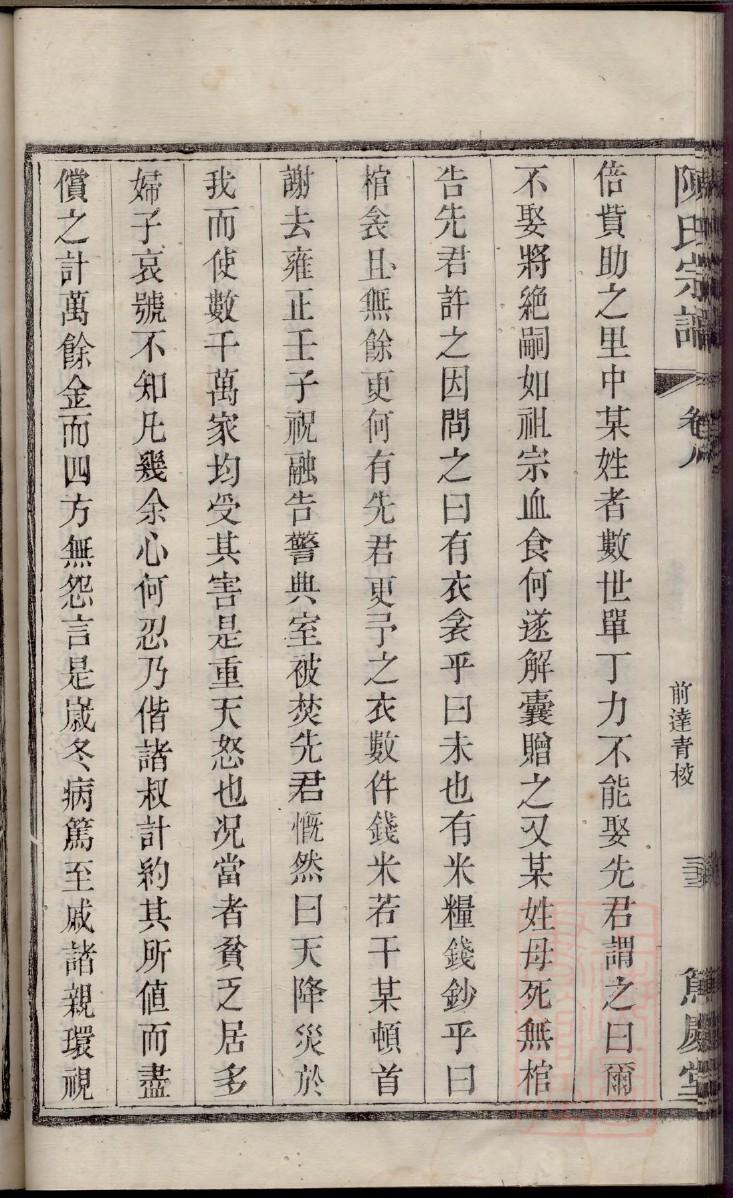 陳氏宗譜
卷八
前達青棱
篤慶堂
倍貲助之里中某姓者數世單丁力不能娶先君謂之曰爾
不娶將絕嗣如祖宗血食何遂解囊贈之又某姓母死無棺
告先君許之因問之曰有衣衾乎曰未也有米糧錢鈔乎曰
棺衾且無餘更何有先君更予之衣數件錢米若干某頓首
謝去雍正壬子祝融告警典室被焚先君慨然曰天降災於
我而使數千萬家均受其害是重天怒也况當者貧乏居多
婦子哀號不知凡幾余心何忍乃偕諸叔計約其所值而盡
償之計萬餘金而四方無怨言是歲冬病篤至戚諸親環視